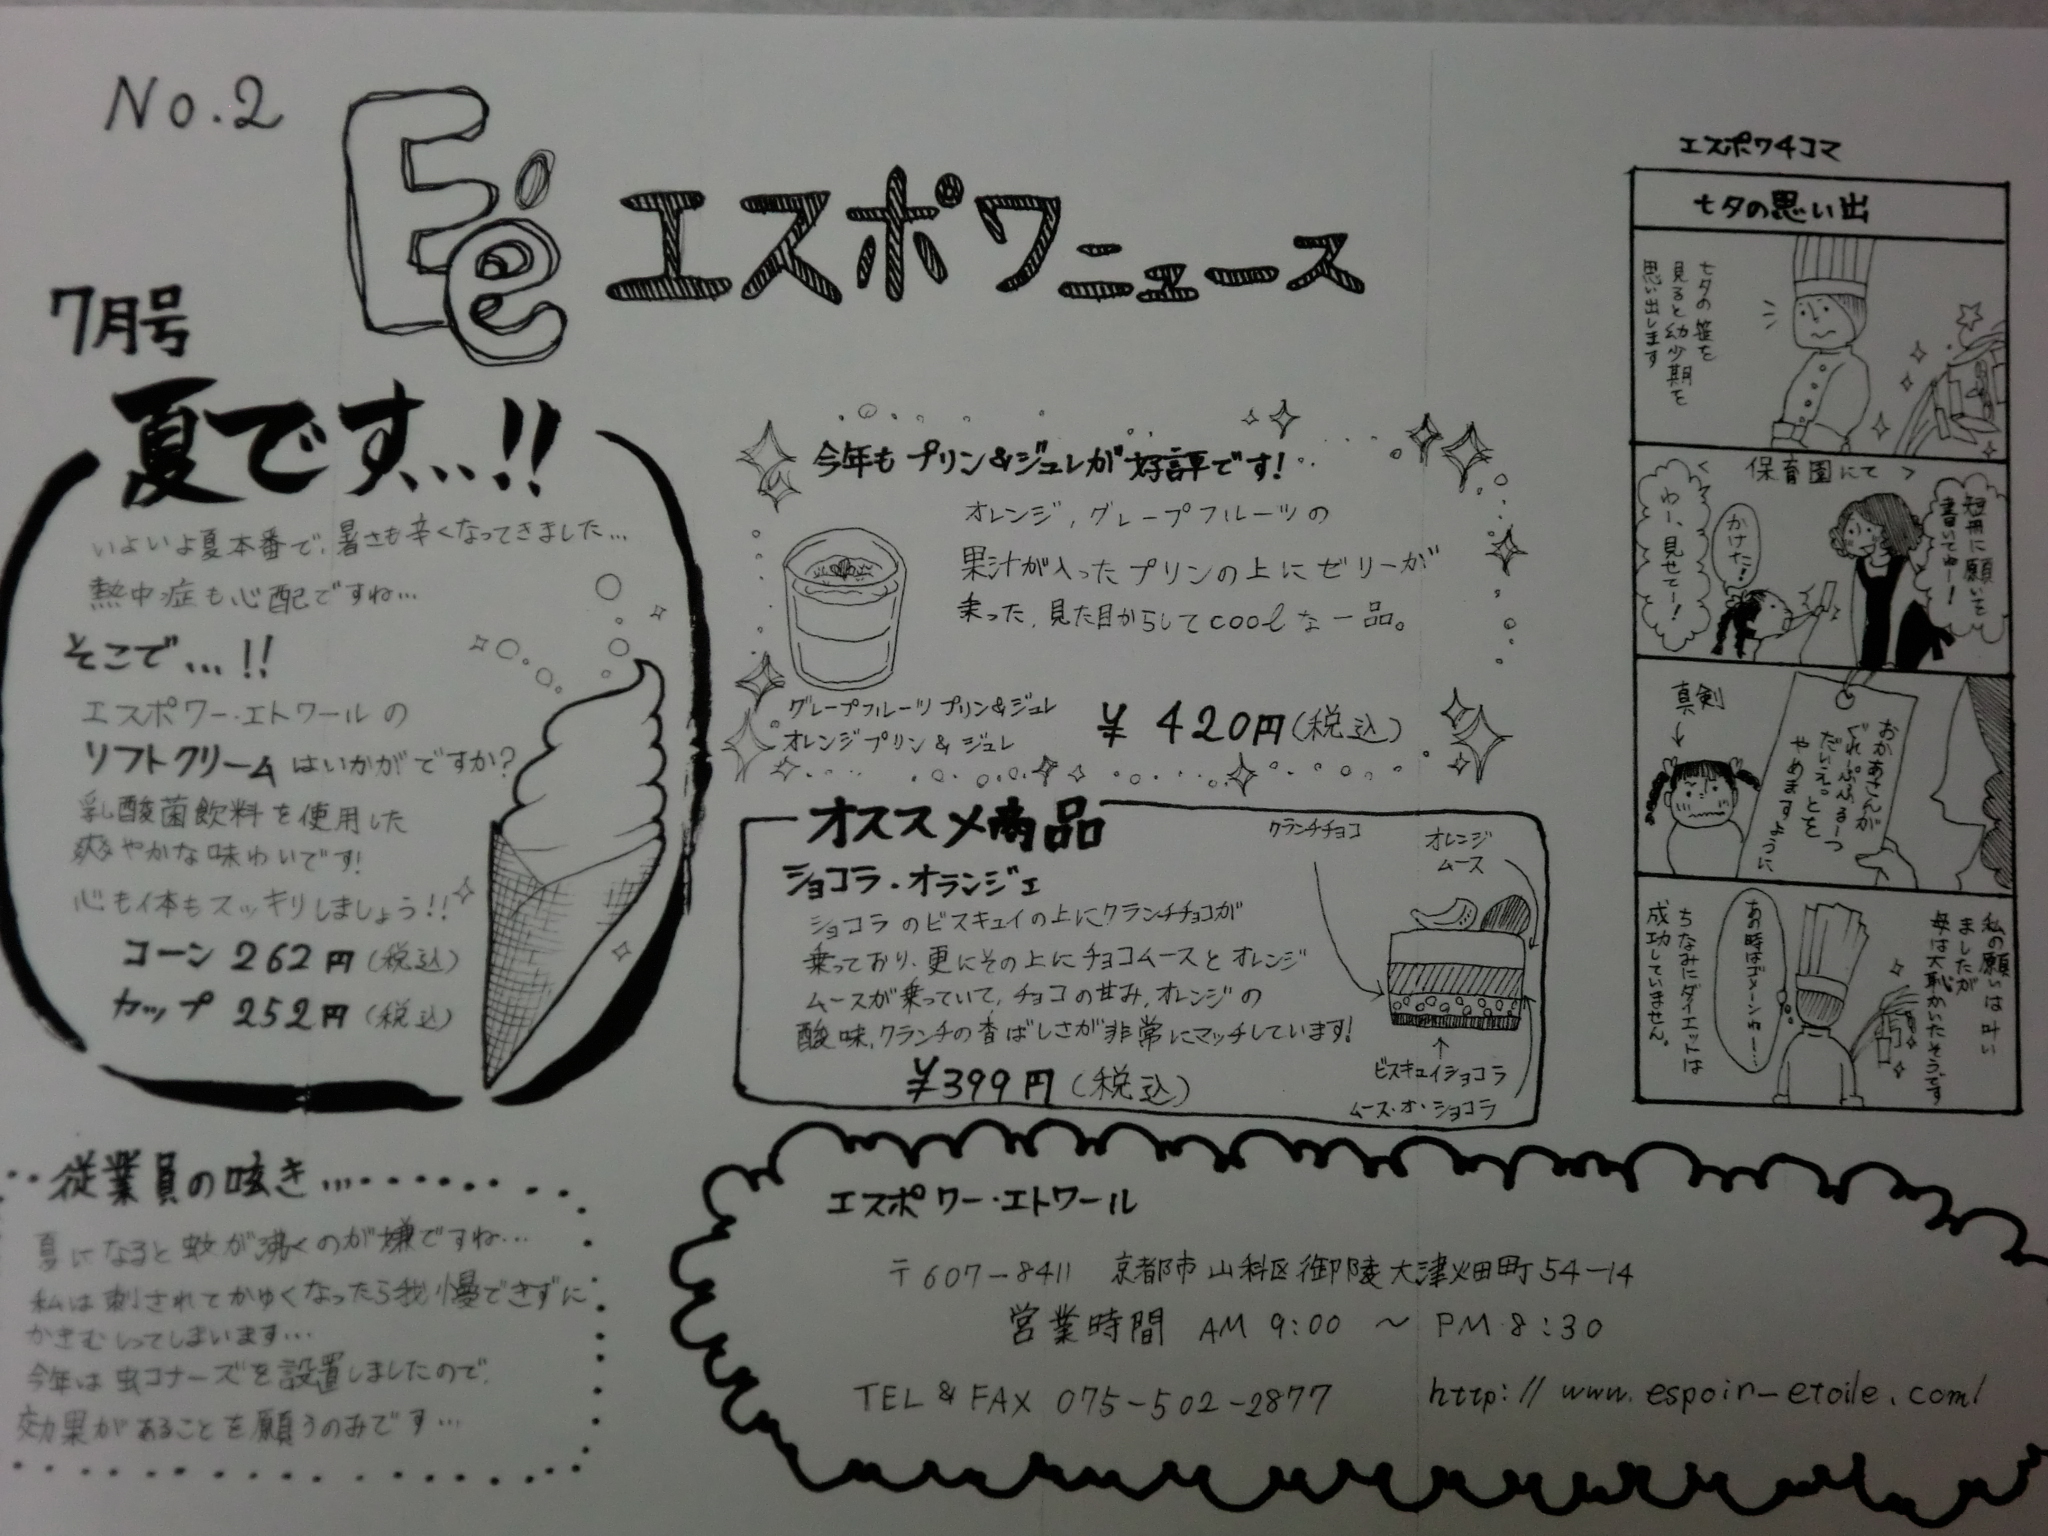 No.2
Ee
エスポワニュース
7月号
夏です…!!
いよいよ夏本番で、暑さも辛くなってきました…
熱中症も心配ですね…
そこで…!!
エスポワー・エトワールの
ソフトクリームはいかがですか?
乳酸菌飲料を使用した
爽やかな味わいです!
心も体もスッキリしましょう!!
コーン 262円(税込)
カップ 252円(税込)
従業員の呟き…
夏になると蚊が沸くのが嫌ですね…
私は刺されてかゆくなったら我慢できずに
かきむしってしまいます…
今年は虫コナーズを設置しましたので、
効果があることを願うのみです…
今年もプリン&ジュレが好評です!
オレンジ,グレープフルーツの
果汁が入ったプリンの上にゼリーが
乗った,見た目からしてcoolな一品。
グレープフルーツプリン&ジュレ
オレンジプリン&ジュレ
¥420円(税込)
オススメ商品
ショコラ・オランジェ
ショコラのビスキュイの上にクランチチョコが
乗っており、更にその上にチョコムースとオレンジ
ムースが乗っていて,チョコの甘み,オレンジの
酸味,クランチの香ばしさが非常にマッチしています!
¥399円(税込)
クランチチョコ
オレンジ
ムース
ビスキュイショコラ
ムース・オ・ショコラ
エスポワ4コマ
七夕の思い出
七夕の笹を
見ると幼少期を
思い出します
<保育園にて>
短冊に願いを
書いてねー!
かけた!
わー、見せてー!
真剣
おかあさんが
ぐれーぷふるーつ
だいえっとを
やめますように
私の願いは叶い
ましたが
母は大恥かいたそうです
あの時はゴメーンねー…
ちなみにダイエットは
成功していません。
エスポワー・エトワール
〒607-8411 京都市山科区御陵大津畑町54-14
営業時間 AM 9:00 〜 PM 8:30
TEL & FAX 075-502-2877
http://www.espoir-etoile.com/